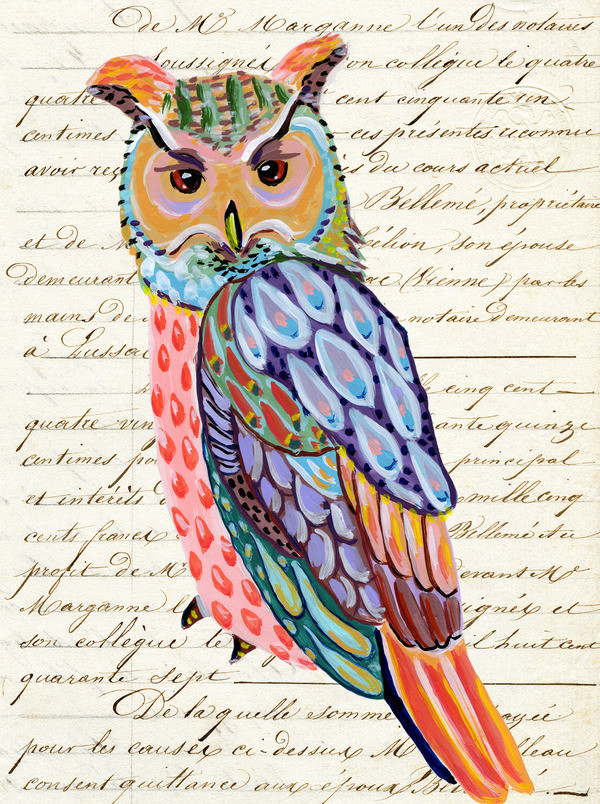 De Me Marganne l'un des notaires
soussignés son collègue le quatre
quatre cent cinquante un
centimes ces présentes reconnu
avoir reç is du cours actuel
Bellemé, propriétaire
et de M élion, son épouse
demeurant ac (Vienne) par les
mains de notaire demeurant
à Lussac
cinq cent
quatre vin ante quinze
centimes po principal
et intérêts mille cinq
cents francs Bellemé au
profit de Me devant Me
Marganne l ignés et
son collègue le il huit cent
quarante sept
De laquelle somme ayée
pour les causes ci-dessus M lleau
consent quittance aux époux Bel